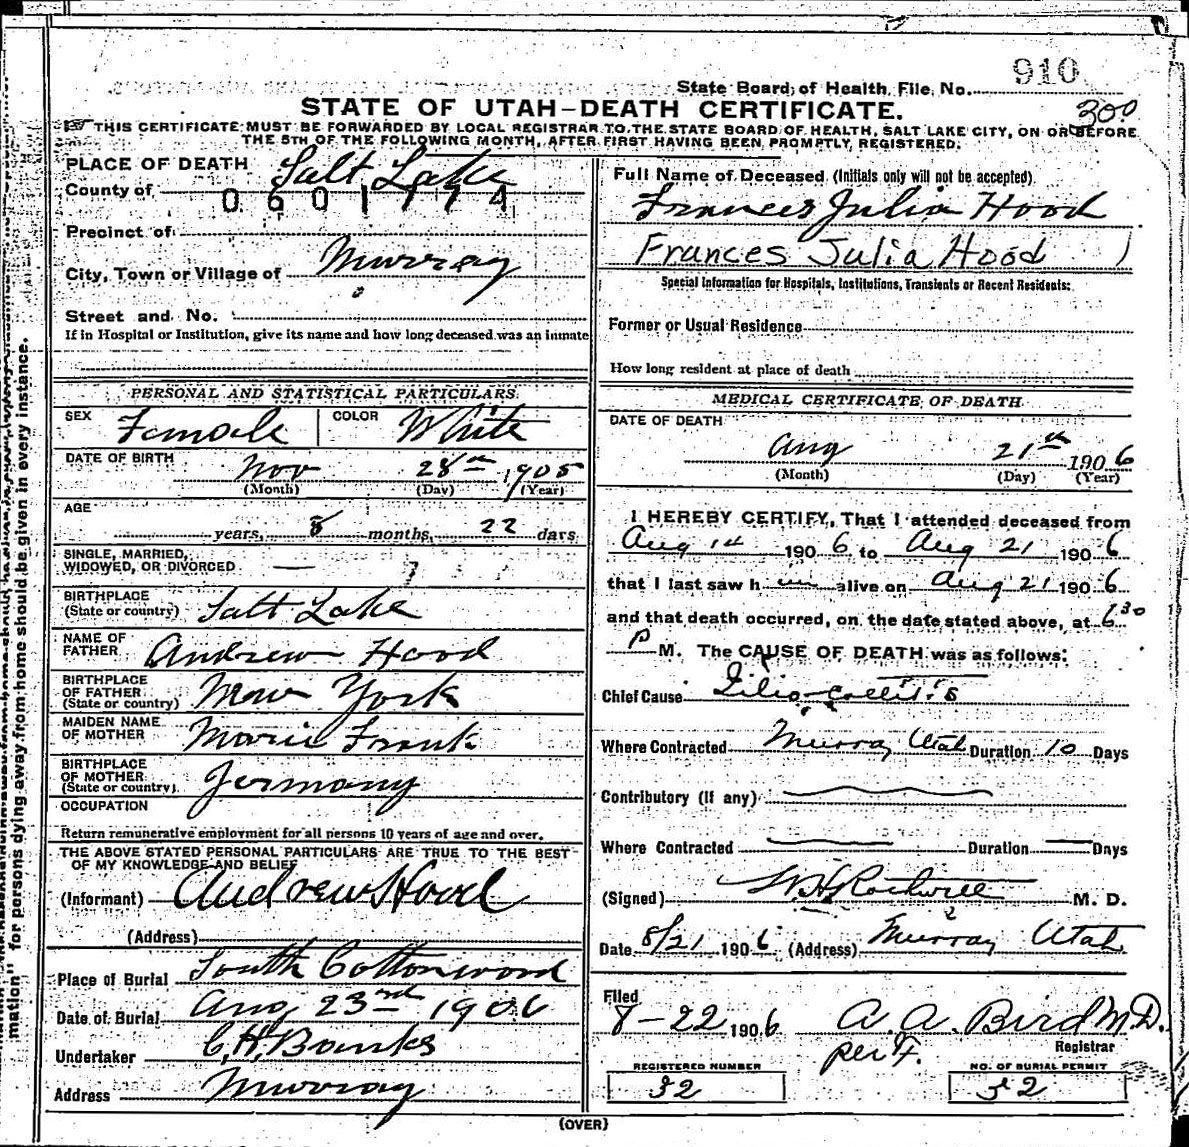 910
State Board of Health File No.
STATE OF UTAH—DEATH CERTIFICATE.
300
THIS CERTIFICATE MUST BE FORWARDED BY LOCAL REGISTRAR TO THE STATE BOARD OF HEALTH, SALT LAKE CITY, ON OR BEFORE
THE 5TH OF THE FOLLOWING MONTH, AFTER FIRST HAVING BEEN PROMPTLY REGISTERED.
PLACE OF DEATH
County of Salt Lake
0601774
Precinct of
City, Town or Village of Murray
Street and No.
If in Hospital or Institution, give its name and how long deceased was an inmate
PERSONAL AND STATISTICAL PARTICULARS.
SEX Female COLOR White
DATE OF BIRTH Nov 28th 1905
(Month) (Day) (Year)
AGE
years, 8 months, 22 days
SINGLE, MARRIED,
WIDOWED, OR DIVORCED —
BIRTHPLACE
(State or country) Salt Lake
NAME OF
FATHER Andrew Hood
BIRTHPLACE
OF FATHER
(State or country) New York
MAIDEN NAME
OF MOTHER Marie Frank
BIRTHPLACE
OF MOTHER
(State or country) Germany
OCCUPATION
Return remunerative employment for all persons 10 years of age and over.
THE ABOVE STATED PERSONAL PARTICULARS ARE TRUE TO THE BEST
OF MY KNOWLEDGE AND BELIEF
(Informant) Andrew Hood
(Address)
Place of Burial South Cottonwood
Date of Burial Aug 23rd 1906
Undertaker C.H. Banks
Address Murray
Full Name of Deceased (Initials only will not be accepted).
Frances Julia Hood
Frances Julia Hood
Special Information for Hospitals, Institutions, Transients or Recent Residents:
Former or Usual Residence
How long resident at place of death
MEDICAL CERTIFICATE OF DEATH
DATE OF DEATH
Aug 21th 1906
(Month) (Day) (Year)
I HEREBY CERTIFY, That I attended deceased from
Aug 14 1906 to Aug 21 1906
that I last saw h alive on Aug 21 1906
and that death occurred, on the date stated above, at 6 30
P M. The CAUSE OF DEATH was as follows:
Chief Cause Ilio-collitis
Where Contracted Murray Utah Duration 10 Days
Contributory (if any)
Where Contracted Duration Days
(Signed) W.H. Rockwell M. D.
Date 8/21 1906 (Address) Murray Utah
Filed
8-22 1906 A. A. Bird M.D.
per F. Registrar
REGISTERED NUMBER NO. OF BURIAL PERMIT
52 52
(OVER)
mation" for persons dying away from home should be given in every instance.